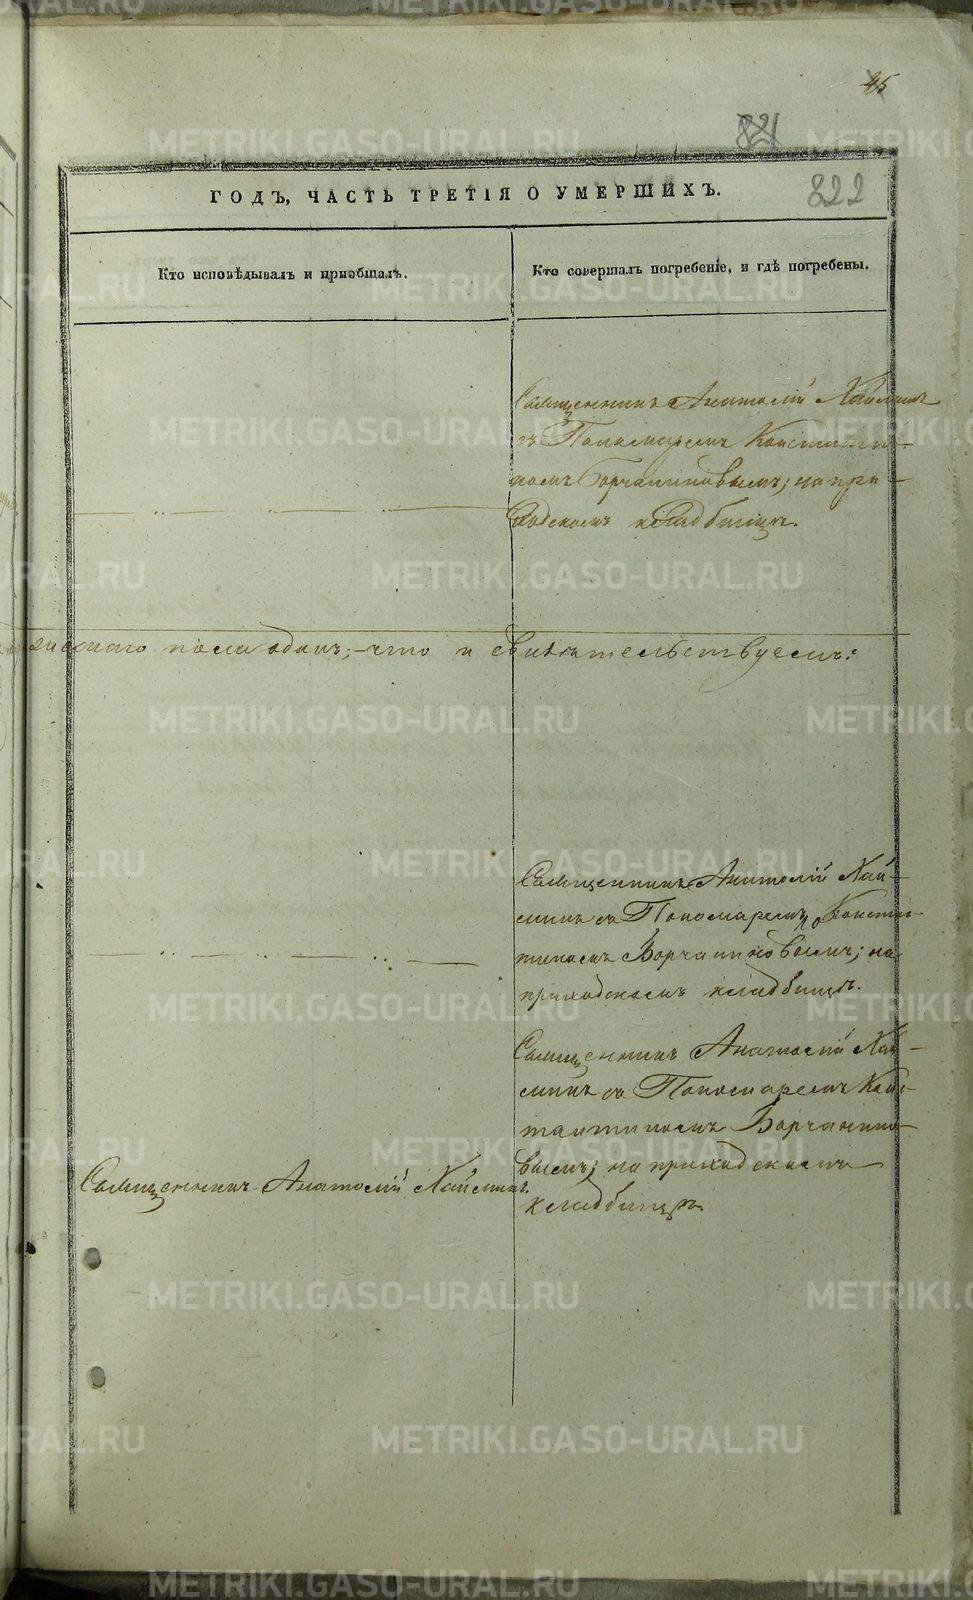 45
821
822
ГОДЪ, ЧАСТЬ ТРЕТІЯ О УМЕРШИХЪ.
Кто исповѣдывалъ и пріобщалъ.
Кто совершалъ погребеніе, и гдѣ погребены.
Священникъ Анатолій Хаймин
съ Пономаремъ Константи-
номъ Борчаниновымъ; на при-
ходскомъ кладбищѣ.
пола одинъ; – что и свидѣтельствуемъ:
Священникъ Анатолій Хай-
минъ съ Пономаремъ Констан-
тиномъ Борчаниновымъ; на
приходскомъ кладбищѣ.
Священникъ Анатолій Хай-
минъ съ Пономаремъ Конс-
тантиномъ Борчанино-
вымъ; на приходскомъ
кладбищѣ.
Священникъ Анатолій Хайминъ.
METRIKI.GASO-URAL.RU